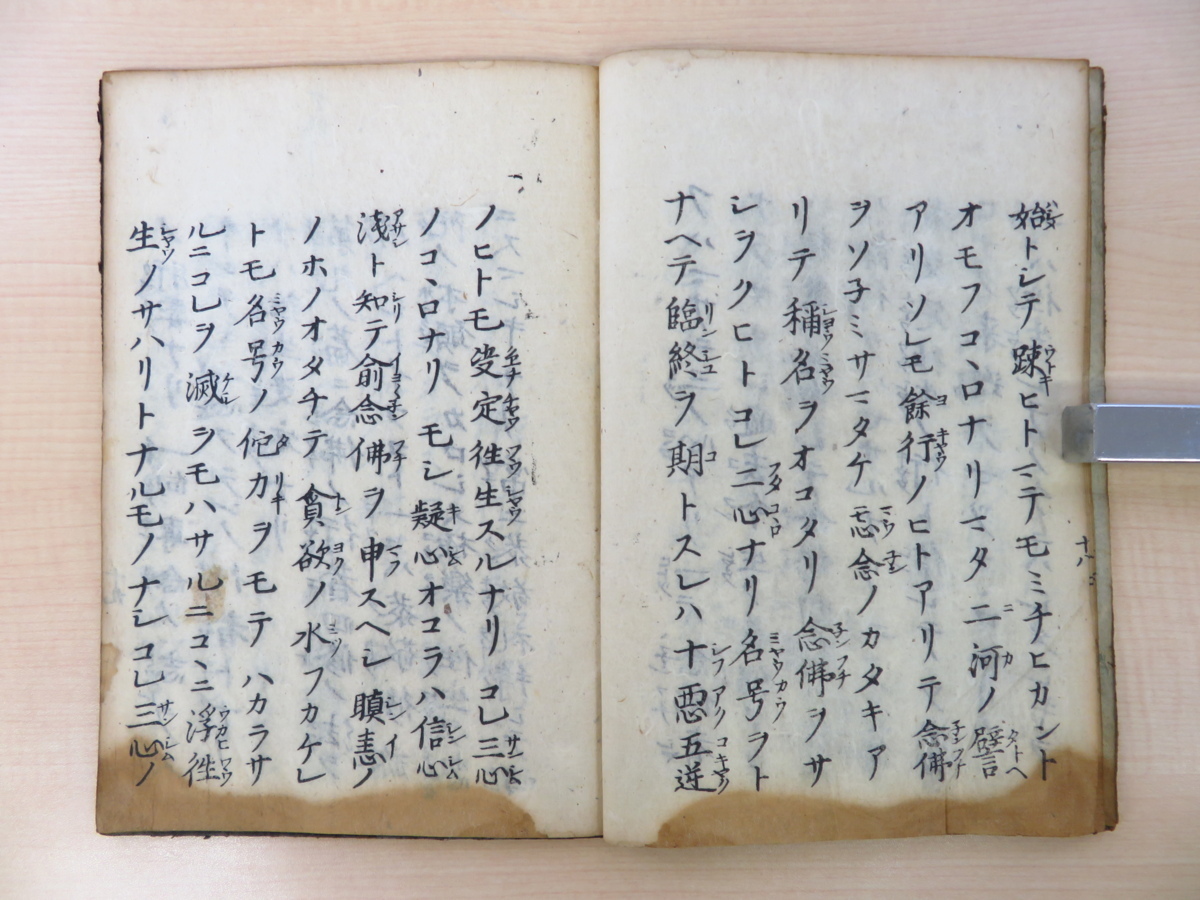 始トシテ踈ヒトミテモミチヒカント
オモフコヽロナリマタ二河ノ譬
アリソレモ餘行ノヒトアリテ念佛
ヲソ子ミサマタケ悪念ノカタキア
リテ稱名ヲオコタリ念佛ヲサ
シヲクヒトコレ二心ナリ名号ヲト
ナヘテ臨終ヲ期トスレハ十悪五逆
ノヒトモ决定徃生スルナリコレ三心
ノコヽロナリモシ疑心オコラハ信心
浅ト知テ俞念佛ヲ申スヘシ瞋恚ノ
ノホノオタチテ貪欲ノ水フカケレ
トモ名号ノ佗力ヲモテハカラサ
ルニコレヲ滅ヲモハサルニコヽニ浮徃
生ノサハリトナルモノナシコレ三心ノ
十八